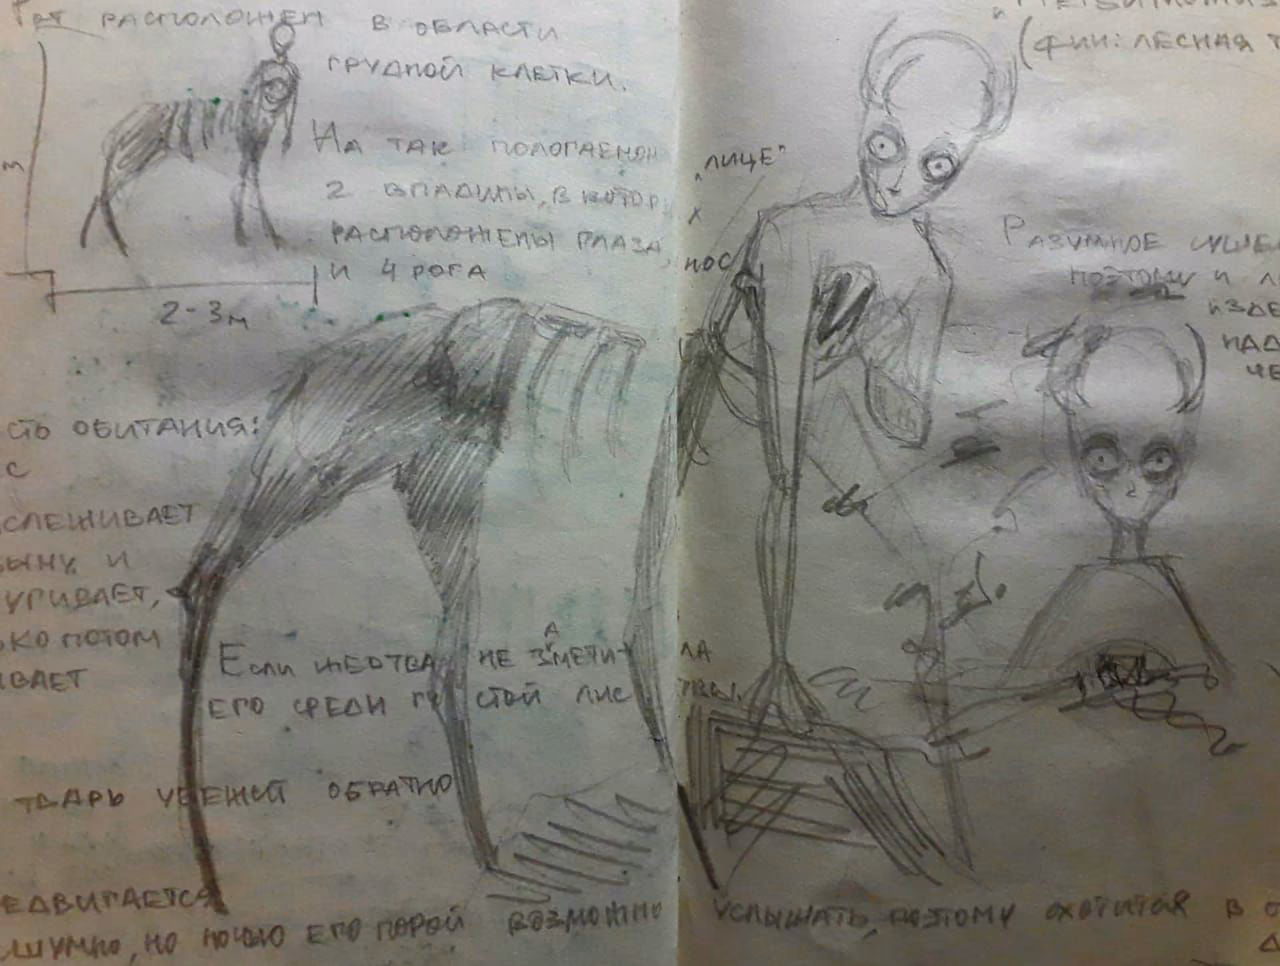 Рот расположен в области
грудной клетки.
На так пологаемом „лице"
2 впадины, в котор х
расположены глаза, нос
и 4 рога
м
2-3м
(фин: лесная т
Разумное суще
поэтому и л
изде
над
че
сть обитания:
с
слеживает
ыну и
уривает,
ько потом
ивает
Если жертва не заметила
его среди густой листвы,
тварь убежит обратно
едвигается
шумно, но ночью его порой возможно услышать, поэтому охотится в о
д